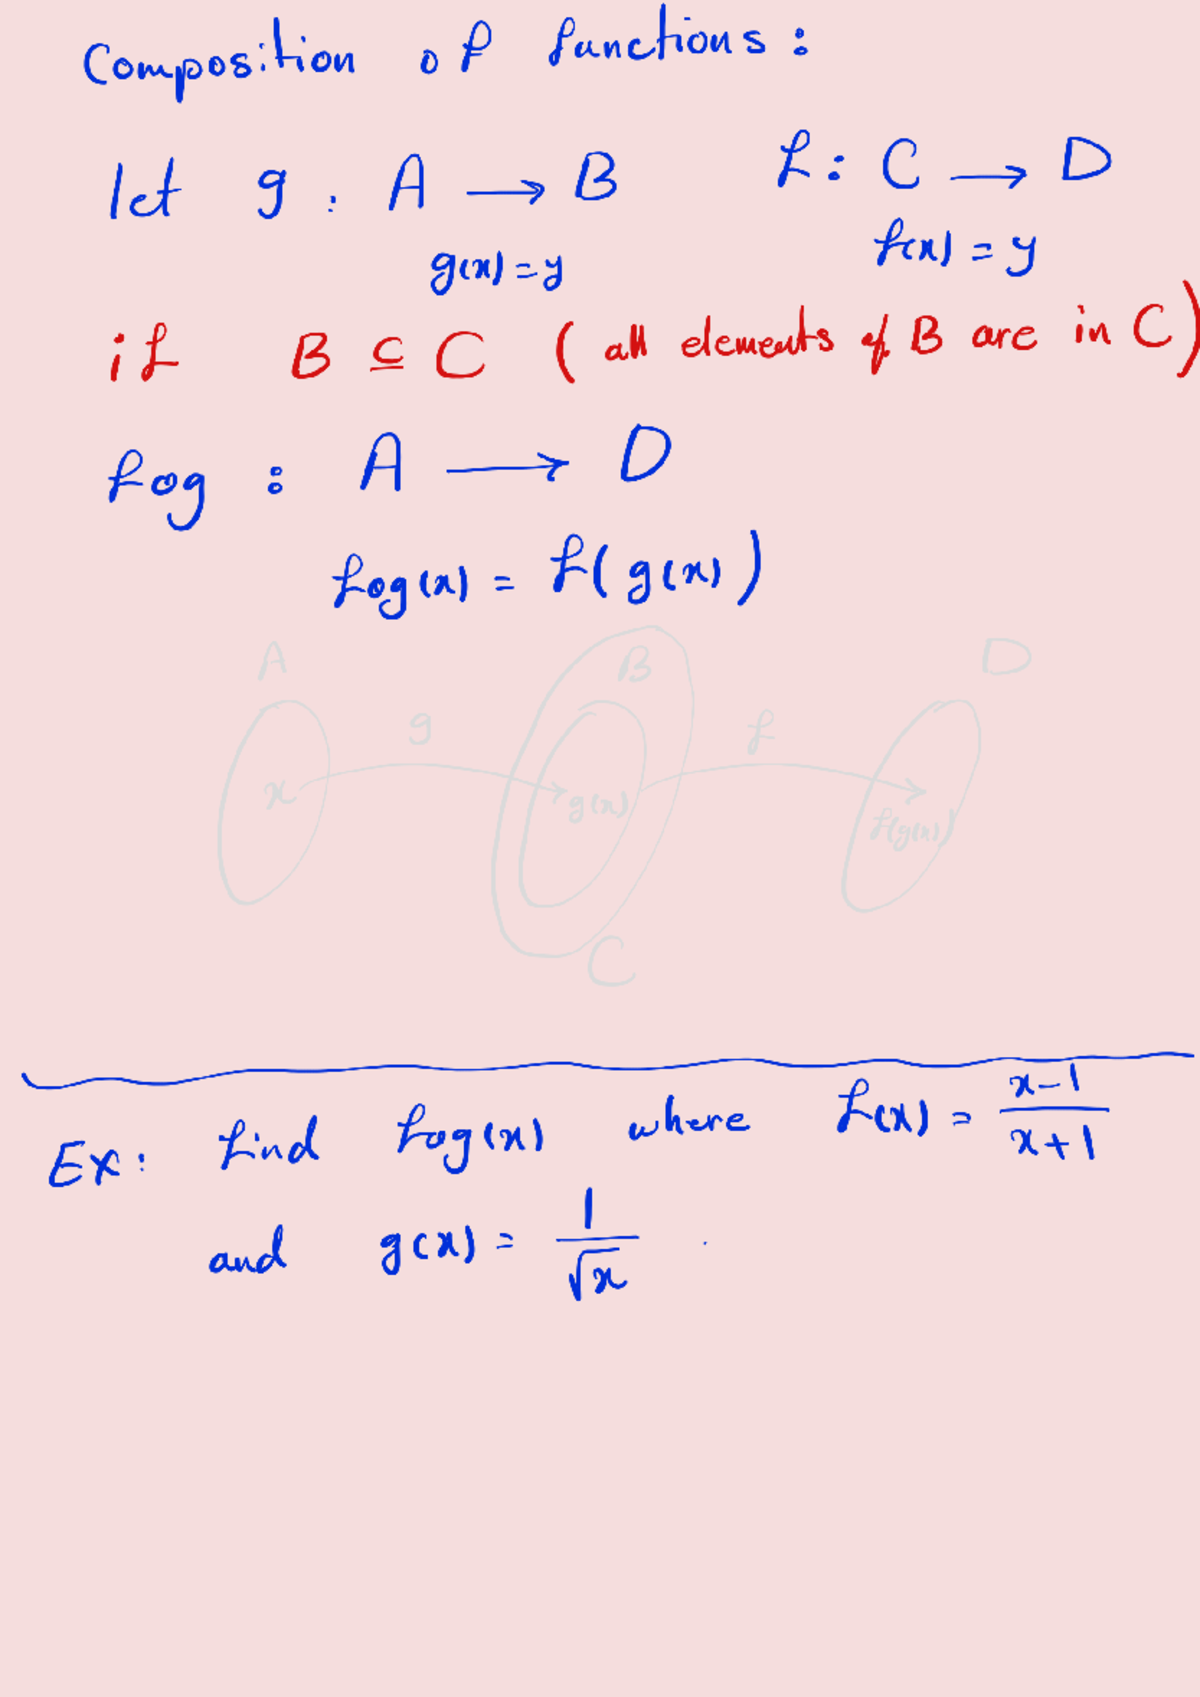 Composition of functions :
let g : A → B f : C → D
g(x) = y f(x) = y
if B ⊆ C ( all elements of B are in C )
fog : A → D
fog(x) = f( g(x) )
A B D
g f
x g(x) f(g(x))
C
Ex : find fog(x) where f(x) = x-1 / x+1
and g(x) = 1 / √x .